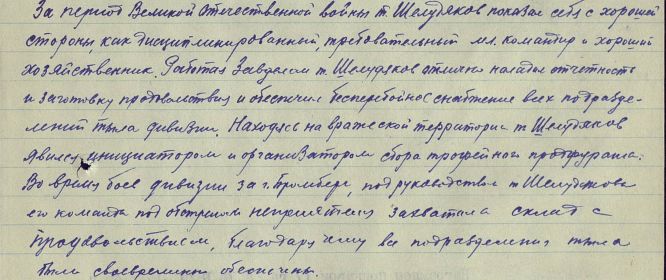 За период Великой отечественной войны т. Шелудяков показал себя с хорошей
стороны, как дисциплинированный, требовательный мл. командир и хороший
хозяйственник. Работая Завделом т. Шелудяков отлично наладил отчетность
и заготовку продовольствия и обеспечил бесперебойное снабжение всех подразде-
лений тыла дивизии. Находясь на вражеской территории т. Шелудяков
явился инициатором и организатором сбора трофейного продфуража.
Во время боев дивизии за г. Бромберг, под руководством т Шелудякова
его команда под обстрелом неприятеля захватила склад с
продовольствием, благодаря чему все подразделения тыла
были своевременно обеспечены.